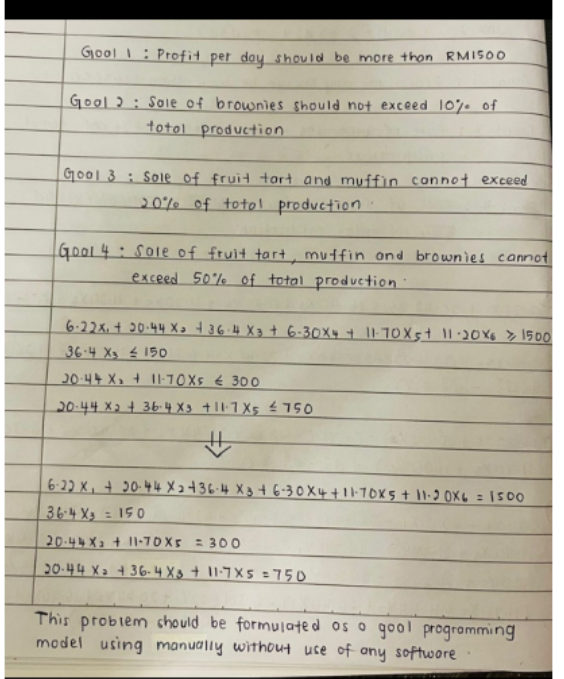 Goal 1 : Profit per day should be more than RM1500
Goal 2 : Sale of brownies should not exceed 10% of
total production
Goal 3 : Sale of fruit tart and muffin cannot exceed
20% of total production.
Goal 4 : Sale of fruit tart, muffin and brownies cannot
exceed 50% of total production.
6.22X₁ + 20.44 X₂ + 36.4 X₃ + 6.30X₄ + 11.70X₅ + 11.20X₆ ≥ 1500
36.4 X₃ ≤ 150
20.44 X₂ + 11.70X₅ ≤ 300
20.44 X₂ + 36.4X₃ + 11.7X₅ ≤ 750
⇓
6.22 X₁ + 20.44 X₂ + 36.4 X₃ + 6.30X₄ + 11.70X₅ + 11.20X₆ = 1500
36.4X₃ = 150
20.44X₂ + 11.70X₅ = 300
20.44 X₂ + 36.4X₃ + 11.7X₅ = 750
This problem should be formulated as a goal programming
model using manually without use of any software.